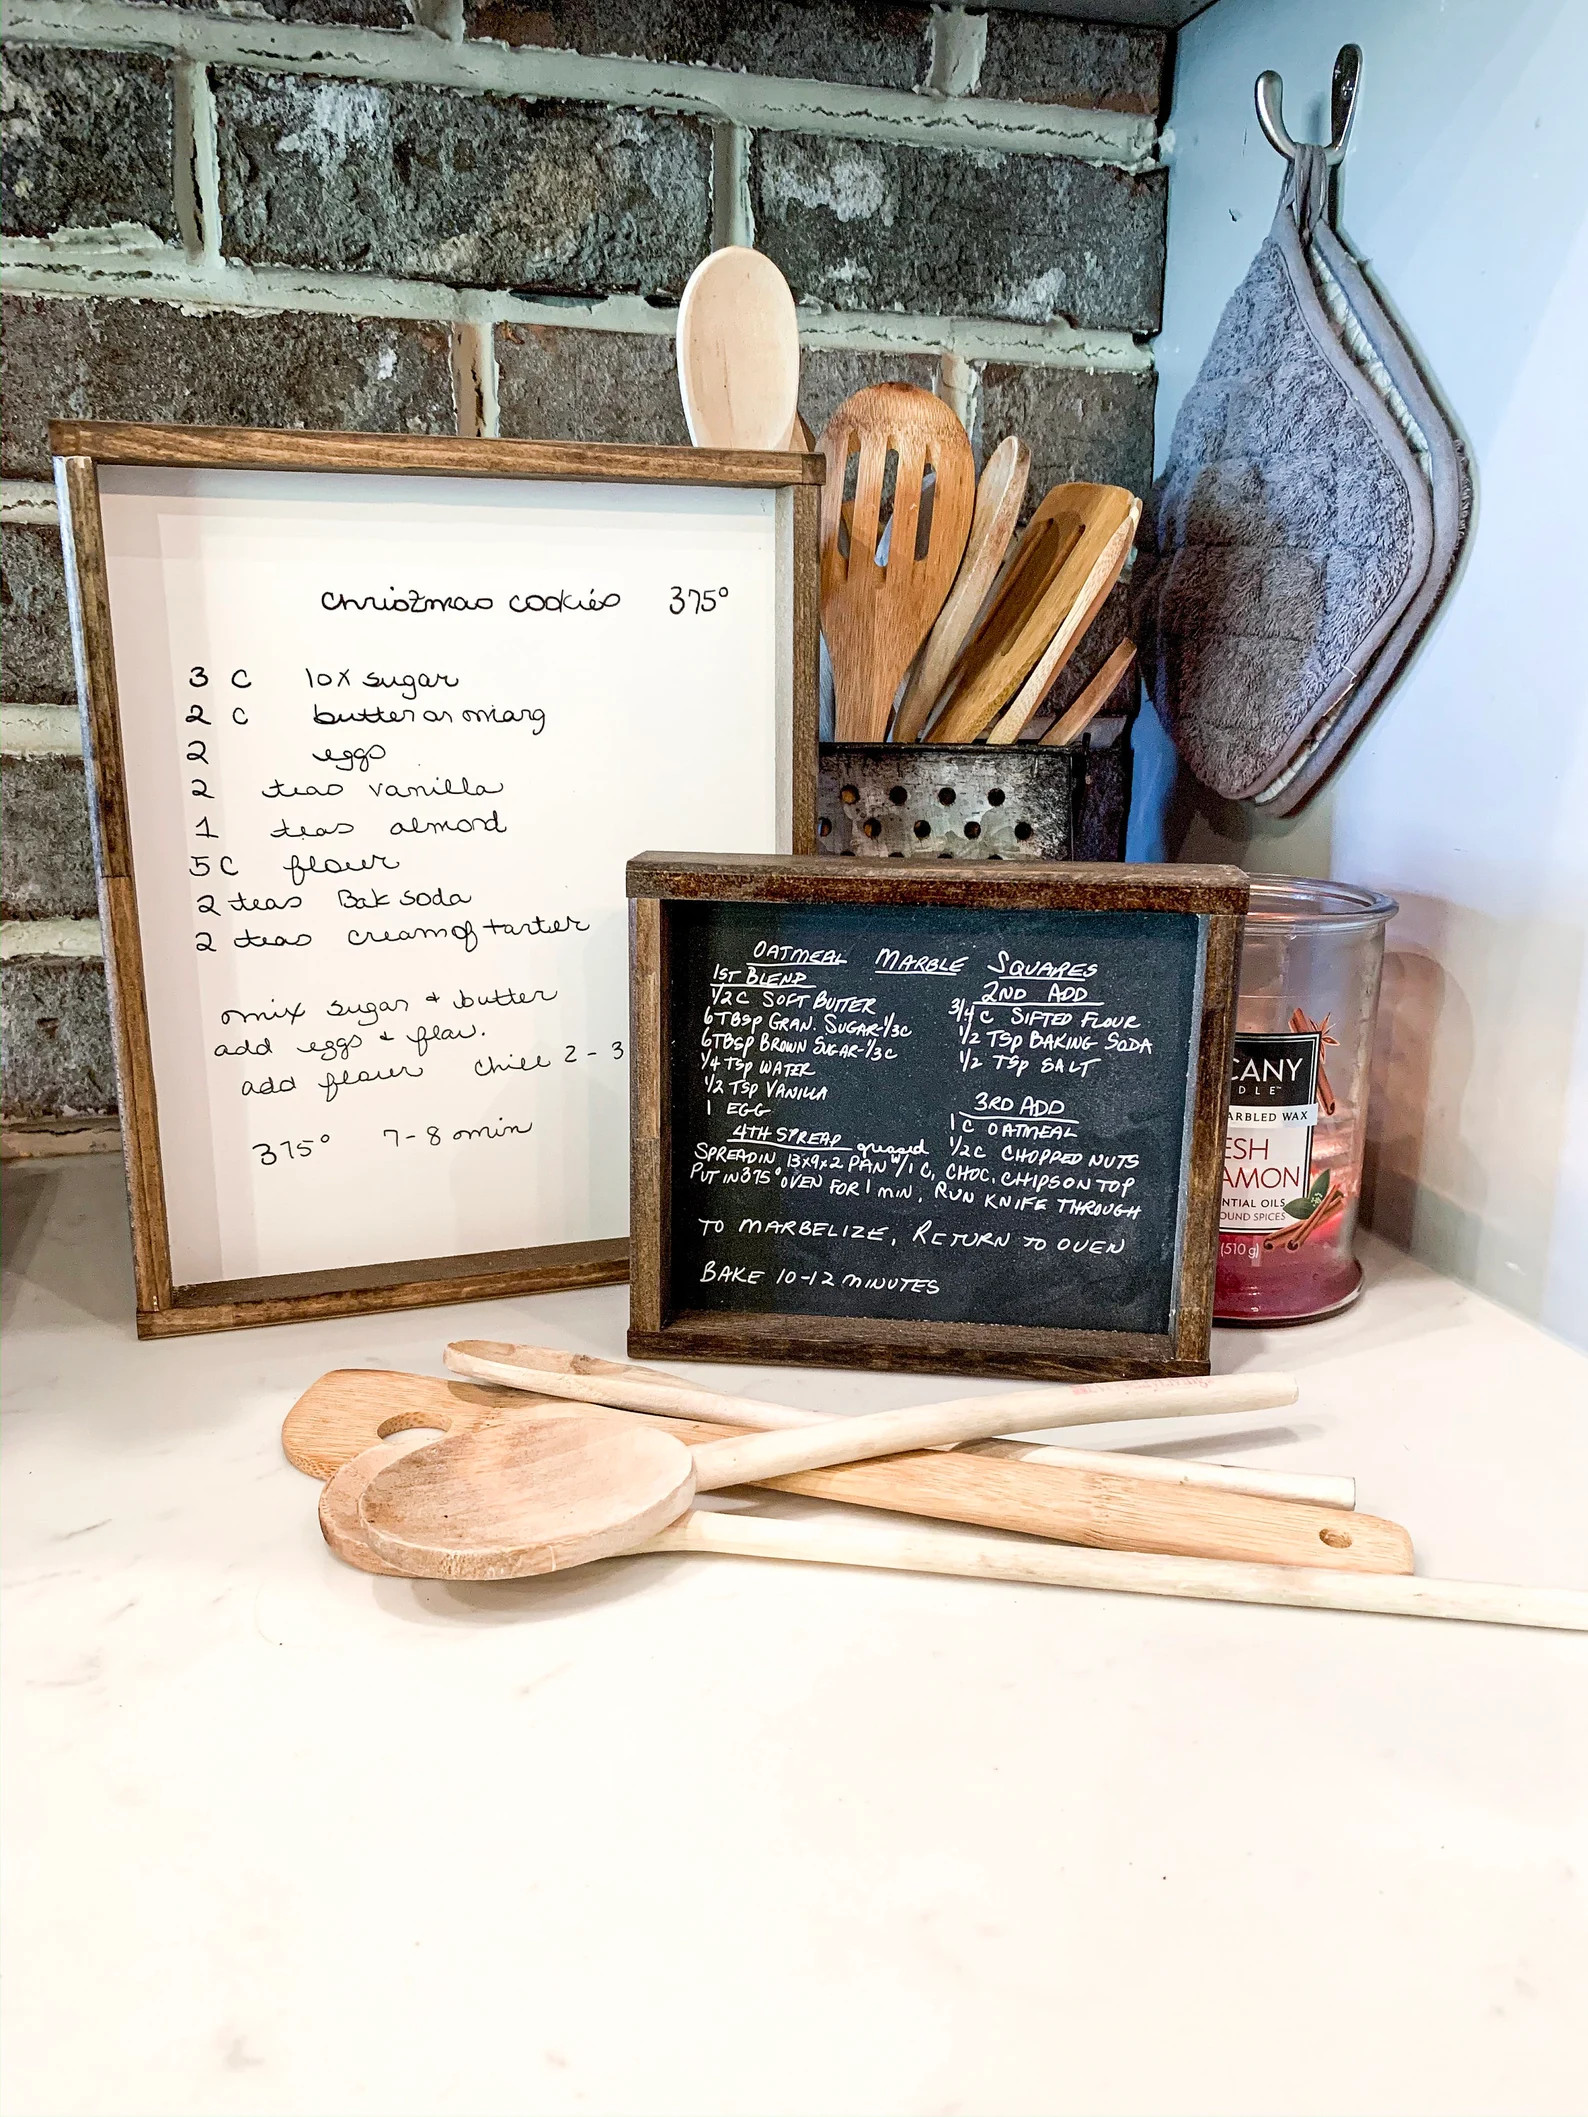 christmas cookies 375°
3 C 10x sugar
2 C butter or marg
2 eggs
2 teas vanilla
1 teas almond
5 C flour
2 teas Bak soda
2 teas cream of tarter
mix sugar & butter
add eggs & flav.
add flour chill 2-3
375° 7-8 min
OATMEAL MARBLE SQUARES
1ST BLEND
1/2 C SOFT BUTTER
6 TBSP GRAN. SUGAR-1/3C
6 TBSP BROWN SUGAR-1/3C
1/4 TSP WATER
1/2 TSP VANILLA
1 EGG
2ND ADD
3/4 C SIFTED FLOUR
1/2 TSP BAKING SODA
1/2 TSP SALT
3RD ADD
1 C OATMEAL
1/2 C CHOPPED NUTS
4TH SPREAD greased
SPREAD IN 13x9x2 PAN W/1 C. CHOC. CHIPS ON TOP
PUT IN 375° OVEN FOR 1 MIN, RUN KNIFE THROUGH
TO MARBELIZE, RETURN TO OVEN
BAKE 10-12 MINUTES
CANY
DLE™
ARBLED WAX
ESH
AMON
NTIAL OILS
OUND SPICES
(510 g)